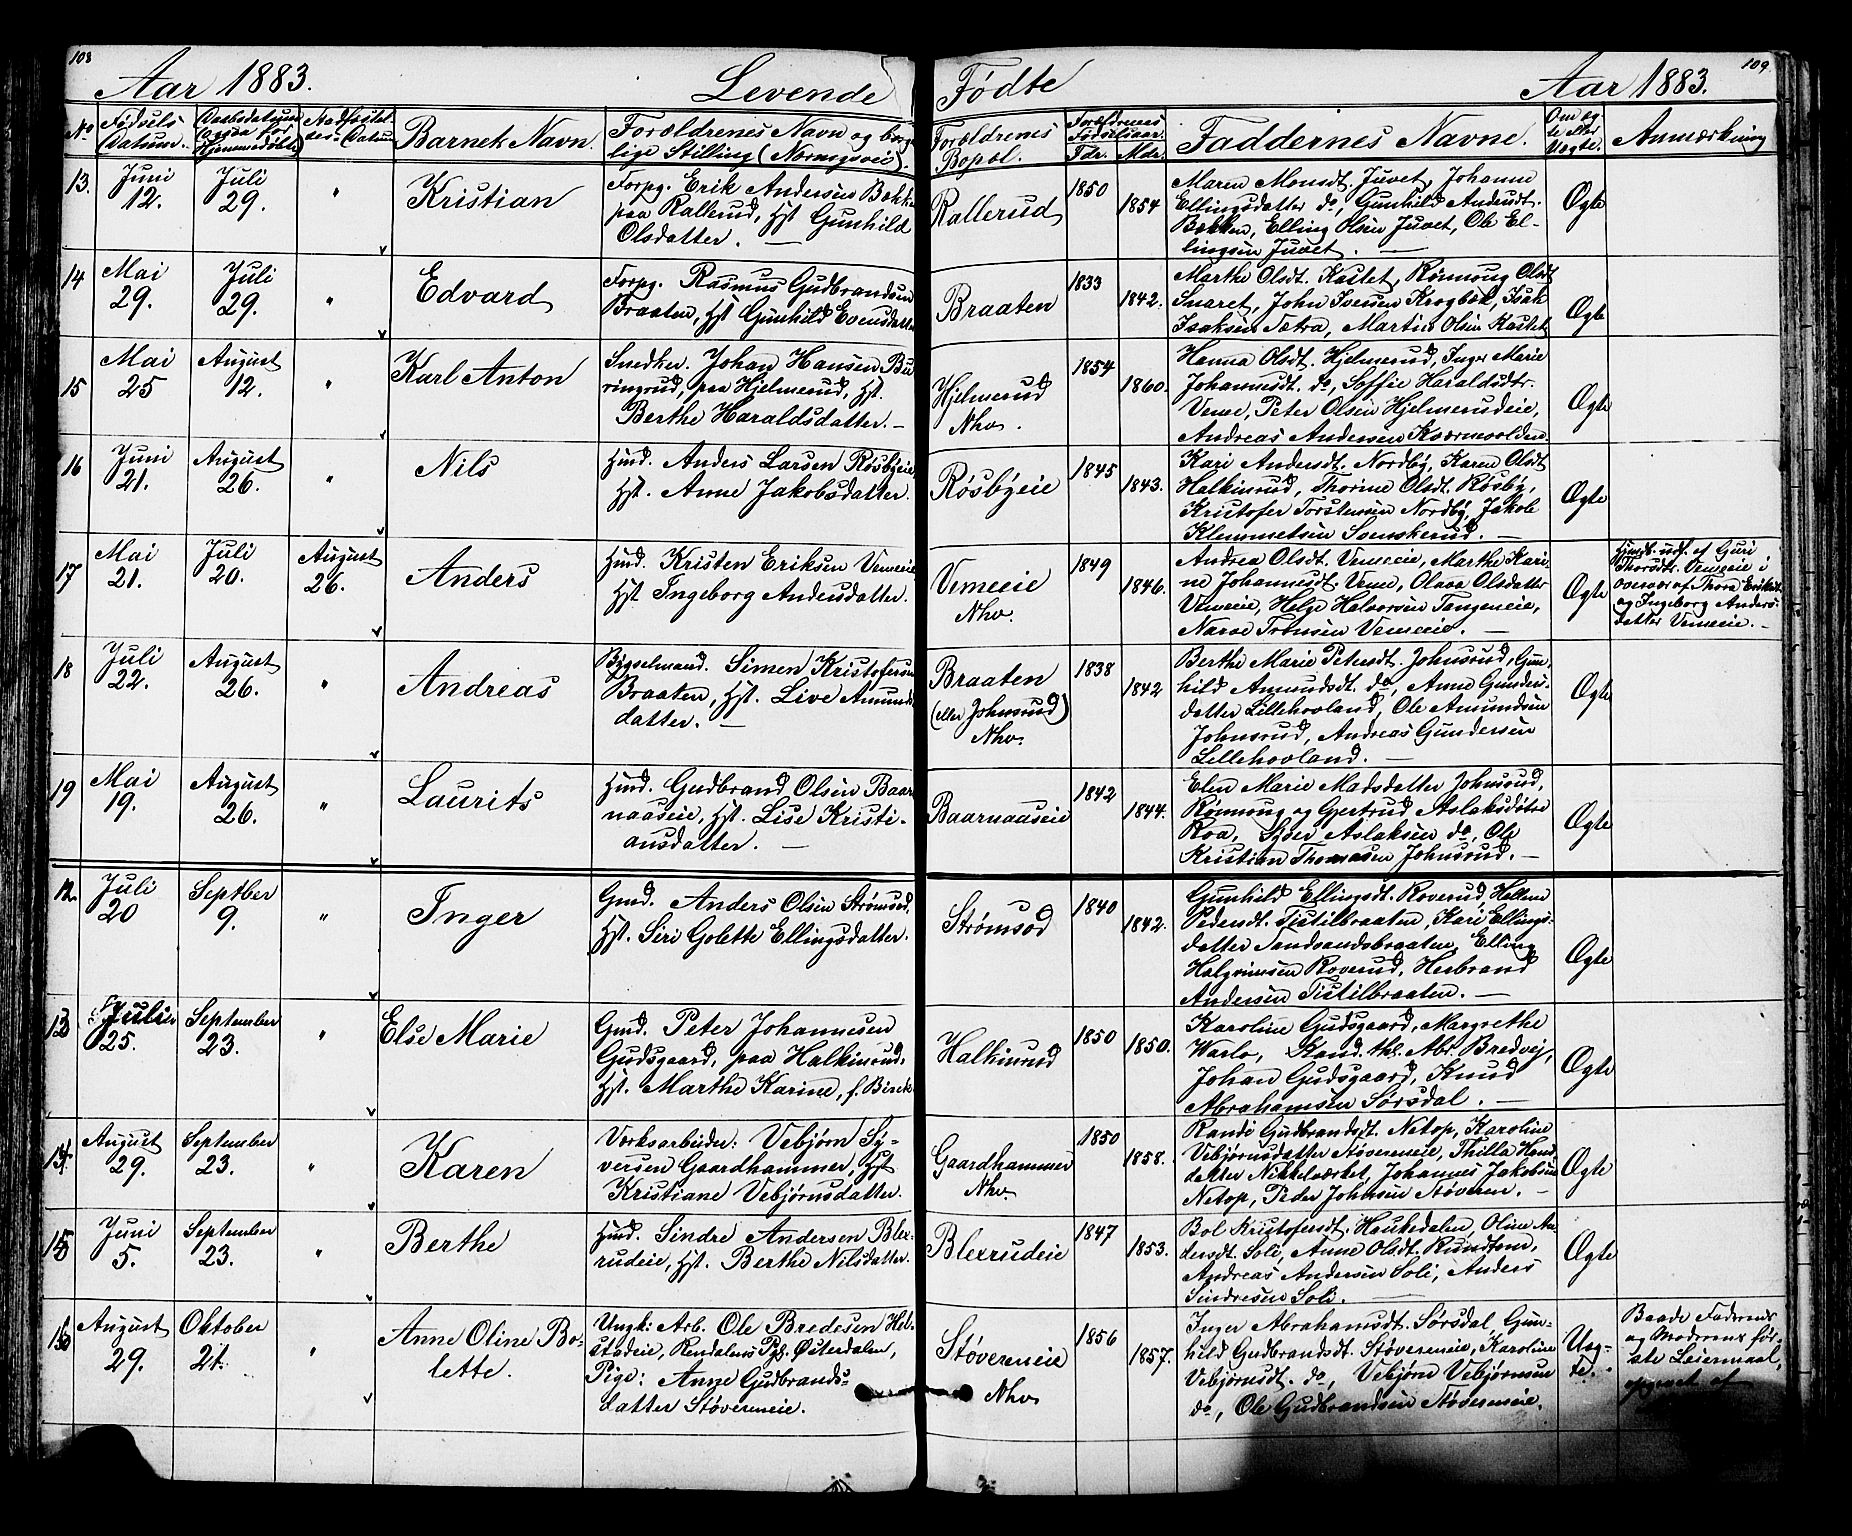 108
Aar 1883.
Levende
Fødte
Aar 1883.
109
No
Fødsels Datum.
Daabsdatum (ogsaa for Hjemmedøbte)
Stadfæstelses-Datum
Barnets Navn.
Forældrenes Navn og borgelige Stilling (Normgsveis).
Forældrenes Bopæl.
Forældrenes Fødselsaar
Fdr. Mdr.
Faddernes Navne.
Om ægte eller Uægte.
Anmærkning
13.
Juni 12.
Juli 29.
"
Kristian
Forpg. Erik Andersen Bekken
paa Rallerud, Hst Gunhild
Olsdatter. —
Rallerud
1850
1854
Maren Monsdt. Juvet, Johanne
Ellingsdatter do, Gunhild Andersdt.
Bækken, Elling Olsen Juvet, Ole El-
lingsen Juvet. —
Ægte
14
Mai 29.
Juli 29.
"
Edvard
Forpg. Rasmus Gudbrandsen
Braaten, Hst Gunhild Evensdatter
Braaten
1833
1842.
Marthe Olsdt. Kastet, Rønnoug Olsdt
Snaret, John Iversen Krogbæk, Isak
Isaksen Tætra, Martin Olsen Kastet
Ægte
15
Mai 25
August 12.
"
Karl Anton
Snedker. Johan Hansen Bu-
ringrud, paa Hjelmerud, Hst.
Berthe Haraldsdatter. —
Hjelmerud
Nhv.
1854
1860.
Hanna Olsdt. Hjelmerud, Inger Marie
Johannesdt. do, Soffie Haraldsdtr.
Veme, Peter Olsen Hjelmerudeie,
Andreas Andersen Kværnvolden
Ægte
16
Juni 21.
August 26.
"
Nils
Hmd. Anders Larsen Røsbyeie,
Hst. Anne Jakobsdatter.
Røsbyeie
1845
1843.
Kari Andersdt. Nordby, Karen Olsdt
Halkinrud, Thorine Olsdt. Røsby,
Kristofer Torstensen Nordby, Jakob
Klemmetsen Svenskerud. —
Ægte
17
Mai 21.
Juli 20.
August 26.
Anders
Hmd. Kristen Eriksen Vemeeie
Hst Ingeborg Andersdatter.
Vemeeie
Nhv.
1849
1846.
Andrea Olsdt. Vemeeie, Marthe Kari-
ne Johannesdt. Veme, Olava Olsdatter
Vemeeie, Helge Halvorsen Tangeneie,
Narve Trønsen Vemeeie. —
Ægte
Hjmdt. udf. af Guri
Thorsdt. Vemeeie i
overvær af Thora Eriksdt.
og Ingeborg Anders-
datter Vemeeie. —
18
Juli 22.
August 26.
"
Andreas
Bygselmand. Simen Kristofersen
Braaten, Hst. Live Amunds-
datter. —
Braaten
(eller Johnsrud)
Nhv.
1838
1842
Berthe Marie Petersdt. Johnsrud, Gun-
hild Amundsdt. do, Anne Gunders-
datter Lillehovland, Ole Amundsen
Johnsrud, Andreas Gundersen
Lillehovland. —
Ægte
19
Mai 19.
August 26.
"
Laurits
Hmd. Gudbrand Olsen Baar-
naaseie, Hst. Lise Kristi-
ansdatter. —
Baarnaaseie
1842
1844.
Elen Marie Madsdatter Johnsrud,
Rønnoug og Gjertrud Aslaksdøtre
Roa, Syver Aslaksen do, Ole
Kristian Thomasen Johnsrud. —
Ægte
12
Juli 20
Septber 9.
"
Inger
Gmd. Anders Olsen Strømsod,
Hst. Siri Golette Ellingsdatter.
Strømsod
1840
1842.
Gunhild Ellingsdt. Roverud, Hellene
Pedersdt. Tistilbraaten, Kari Ellings-
datter Sandsandsbraaten, Elling
Halgrimsen Roverud, Herbrand
Andersen Tistilbraaten. —
Ægte
13
Juli 25.
September 23.
"
Else Marie
Gmd. Peter Johannesen
Gudsgaard, paa Halkinrud,
Hst. Marthe Karine, f. Birck
Halkinrud
1850
1850.
Karoline Gudsgaard, Margrethe
Warlo, Kand. thl. Abr. Bredvej,
Johan Gudsgaard, Knud
Abrahamsen Sørsdal. —
Ægte
14
August 29.
September 23.
"
Karen
Værksarbeider: Vebjørn Sy-
versen Gaardhammer, Hst
Kristiane Vebjørnsdatter.
Gaardhammer
Nhv
1850
1858.
Randi Gudbrandsdt. Netop, Karoline
Vebjørnsdatter Støvereneie, Thilla Hans-
datter Nikkelværket, Johannes Jakobsen
Netop, Peder Johnsen Støveren. —
Ægte
15
Juni 5.
September 23.
"
Berthe
Hmd. Sindre Andersen Blex-
rudeie, Hst. Berthe Nilsdatter.
Blexrudeie
1847
1853.
Bol Kristofersdt. Haukedalen, Oline An-
dersdt. Soli, Anne Olsdt. Rundtom,
Andreas Andersen Soli, Anders
Sindresen Soli. —
Ægte
16
August 29.
Oktober 21.
"
Anne Oline Bo-
lette.
Ungk: Arb. Ole Bredesen Hel-
stadeie, Rendalens Pgld. Østerdalen,
Pige: Anne Gudbrands-
datter Støvereneie.
Støvereneie
Nhv
1856
1857.
Inger Abrahamsdt. Sørsdal, Gun-
hild Gudbrandsdt. Støvereneie, Karoline
Vebjørnsdt. do, Vebjørn Vebjørnsen
do, Ole Gudbrandsen Støvereneie.
Uæg-
te.
Baade Faderens
og Moderens før-
ste Leiermaal,
opgivet af